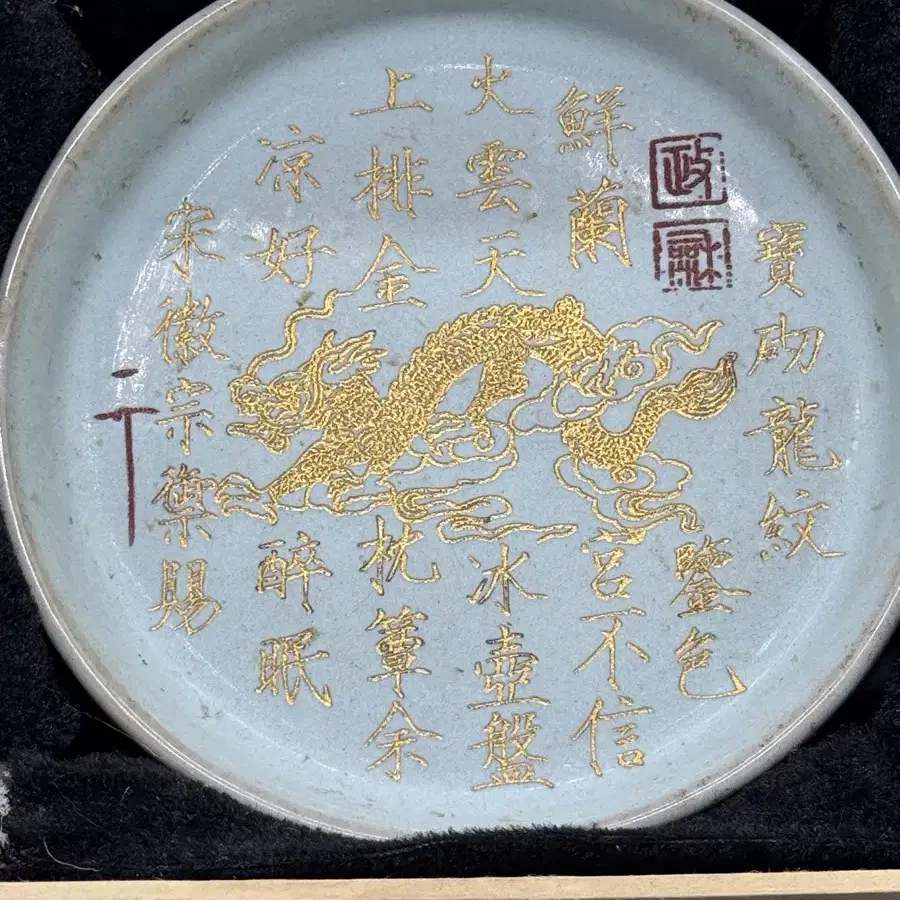 寶砌龍紋
政
鑒色
鮮蘭呂不信
火雲天冰壺盤
上排金枕簟余
凉好醉眠
宋徽宗禦賜